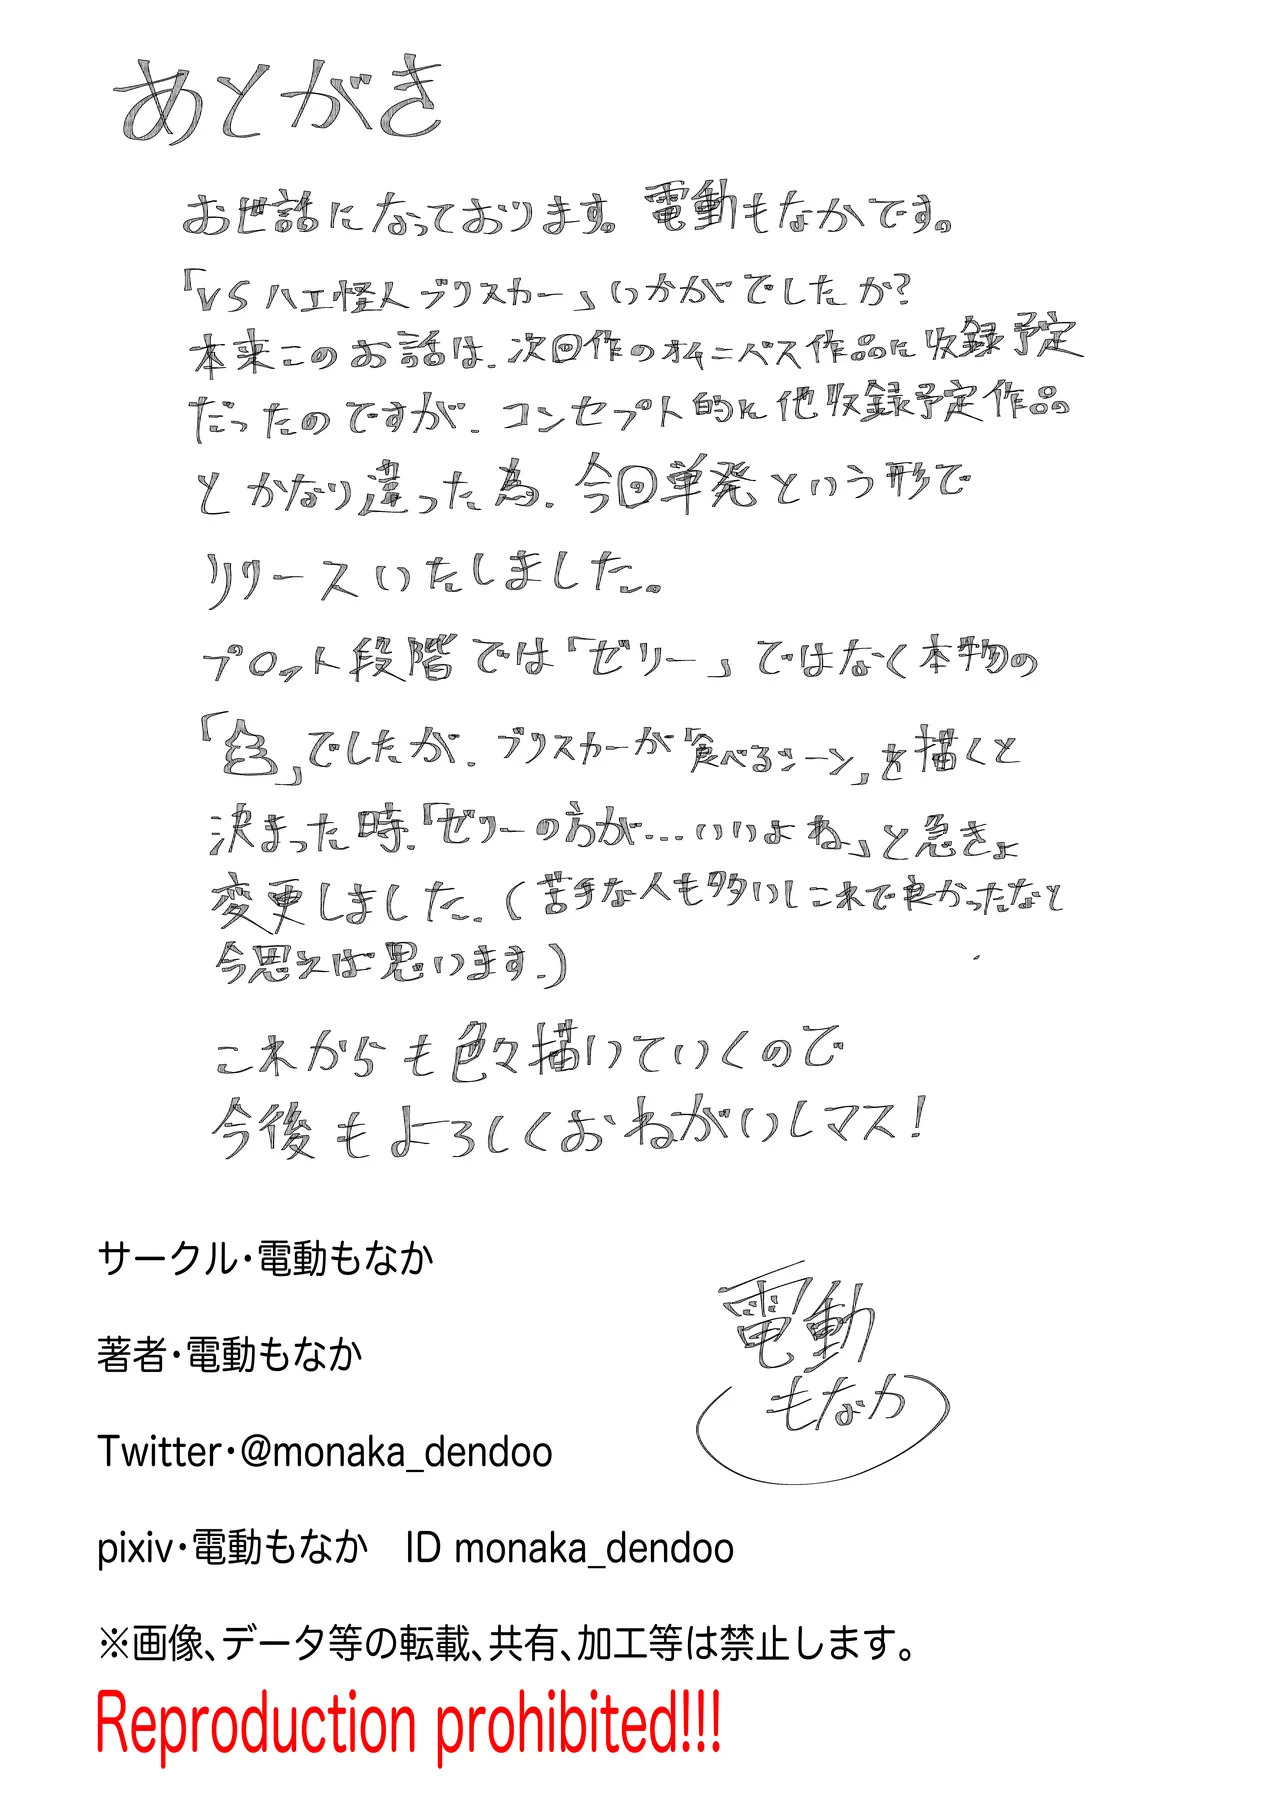 あとがき
お世話になっております。電動もなかです。
「VSハエ怪人ブクスカー」いかがでしたか?
本来このお話は、次回作のオムニバス作品に収録予定
だったのですが、コンセプト的に他収録予定作品
とかなり違った為、今回単発という形で
リリースいたしました。
プロット段階では「ゼリー」ではなく本物の
「」でしたが、ブクスカーが「食べるシーン」を描くと
決まった時、「ゼリーの方が…いいよね」と急きょ
変更しました。(苦手な人も多いしこれで良かったなと
今思えば思います。)
これからも色々描いていくので
今後もよろしくおねがいしマス!
サークル・電動もなか
著者・電動もなか
Twitter・@monaka_dendoo
pixiv・電動もなか ID monaka_dendoo
※画像、データ等の転載、共有、加工等は禁止します。
Reproduction prohibited!!!
電動
もなか